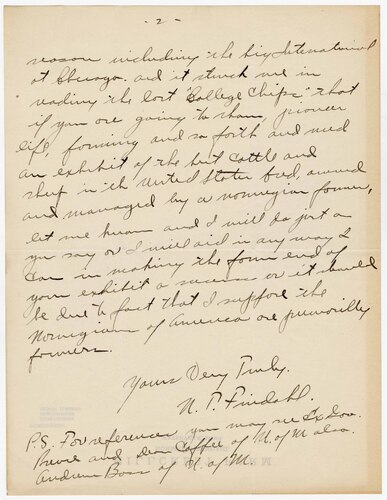 - 2 -
season including the big International
at Chicago. and it struck me in
reading the last "College Chips" that
if you are going to show, pioneer
life, farming and so forth and need
an exhibit of the best cattle and
sheep in the United States bred, owned
and managed by a norwegian farmer,
let me know and I will do just as
you say or I will aid in any way I
can in making the farm end of
your exhibit a success as it should
be due to fact that I suppose the
Norwegians of America are primarily
farmers.
Yours Very Truly.
N. T. Findahl.
P.S. For reference you may see Ex Gov.
Preus and Dean Coffee of U. of M also.
Andrew Boss of U. of M.